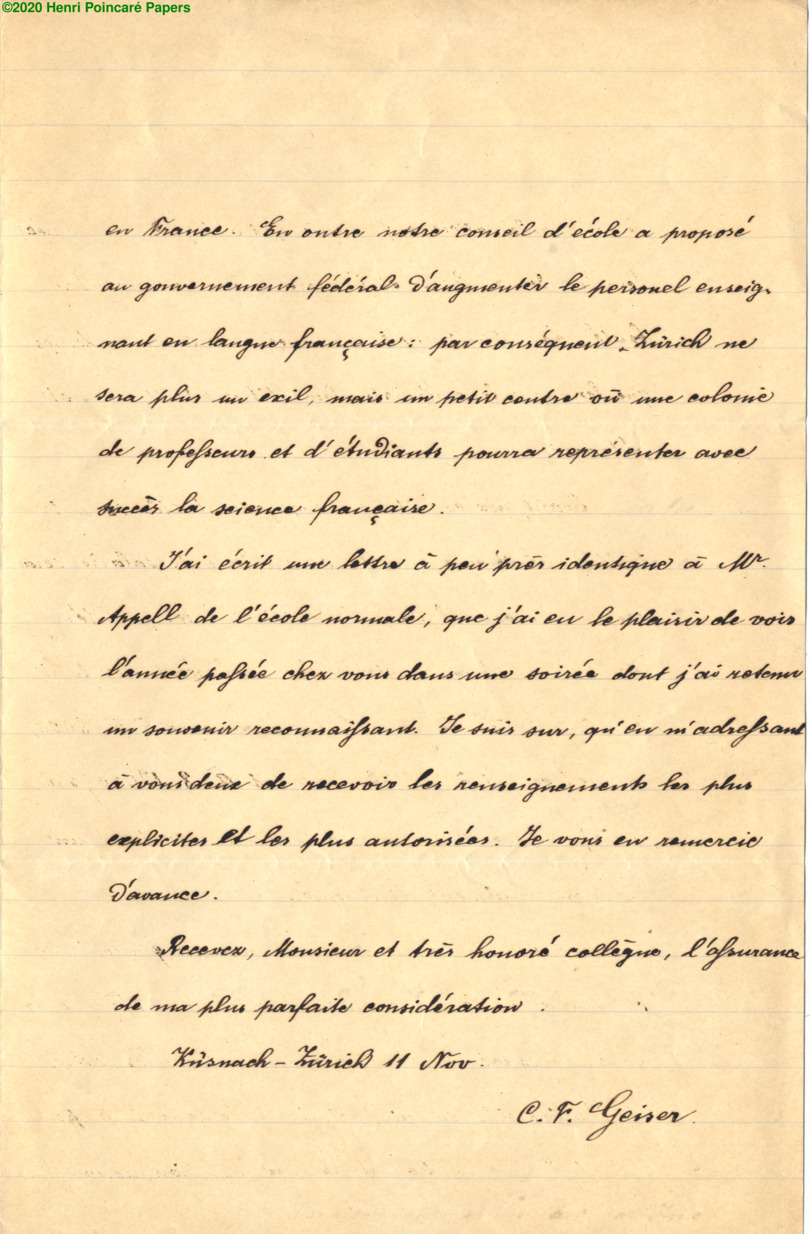 ©2020 Henri Poincaré Papers
en France. En outre notre conseil d'école a proposé
au gouvernement fédéral d'augmenter le personel enseig-
nant en langue française : par conséquent Zürich ne
sera plus un exil, mais un petit centre où une colonie
de professeurs et d'étudiants pourra représenter avec
succès la science française.
J'ai écrit une lettre à peu près identique à Mr.
Appell de l'école normale, que j'ai eu le plaisir de voir
l'année passée chez vous dans une soirée dont j'ai retenu
un souvenir reconnaissant. Je suis sur, qu'en m'adressant
à vous deux de recevoir les renseignements les plus
explicites et les plus autorisées. Je vous en remercie
d'avance.
Recevez, Monsieur et très honoré collègue, l'assurance
de ma plus parfaite considération.
Küsnach - Zürich 11 Nov.
C. F. Geiser.